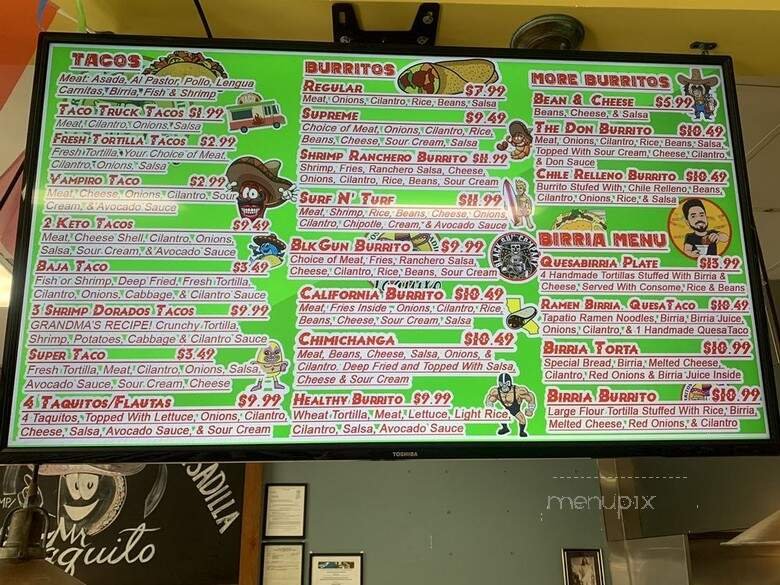 TACOS
Meat: Asada, Al Pastor, Pollo, Lengua
Carnitas, Birria, Fish & Shrimp
TACO TRUCK TACOS $1.99
Meat, Cilantro, Onions, Salsa
FRESH TORTILLA TACOS $2.99
Fresh Tortilla, Your Choice of Meat,
Cilantro, Onions, Salsa
VAMPIRO TACO $2.99
Meat, Cheese, Onions, Cilantro, Sour
Cream, & Avocado Sauce
2 KETO TACOS $9.49
Meat, Cheese Shell, Cilantro, Onions,
Salsa, Sour Cream, & Avocado Sauce
BAJA TACO $3.49
Fish or Shrimp, Deep Fried, Fresh Tortilla,
Cilantro, Onions, Cabbage, & Cilantro Sauce
3 SHRIMP DORADOS TACOS $9.99
GRANDMA'S RECIPE! Crunchy Tortilla,
Shrimp, Potatoes, Cabbage & Cilantro Sauce
SUPER TACO $3.49
Fresh Tortilla, Meat, Cilantro, Onions, Salsa,
Avocado Sauce, Sour Cream, Cheese
4 TAQUITOS/FLAUTAS $9.99
4 Taquitos, Topped With Lettuce, Onions, Cilantro,
Cheese, Salsa, Avocado Sauce, & Sour Cream
BURRITOS
REGULAR $7.99
Meat, Onions, Cilantro, Rice, Beans, Salsa
SUPREME $9.49
Choice of Meat, Onions, Cilantro, Rice,
Beans, Cheese, Sour Cream, Salsa
SHRIMP RANCHERO BURRITO $11.99
Shrimp, Fries, Ranchero Salsa, Cheese,
Onions, Cilantro, Rice, Beans, Sour Cream
SURF N' TURF $11.99
Meat, Shrimp, Rice, Beans, Cheese, Onions,
Cilantro, Chipotle, Cream, & Avocado Sauce
BLKGUN BURRITO $9.99
Choice of Meat, Fries, Ranchero Salsa,
Cheese, Cilantro, Rice, Beans, Sour Cream
CALIFORNIA BURRITO $10.49
Meat, Fries Inside, Onions, Cilantro, Rice,
Beans, Cheese, Sour Cream, Salsa
CHIMICHANGA $10.49
Meat, Beans, Cheese, Salsa, Onions, &
Cilantro. Deep Fried and Topped With Salsa,
Cheese & Sour Cream
HEALTHY BURRITO $9.99
Wheat Tortilla, Meat, Lettuce, Light Rice,
Cilantro, Salsa, Avocado Sauce
MORE BURRITOS
BEAN & CHEESE $5.99
Beans, Cheese, & Salsa
THE DON BURRITO $10.49
Meat, Onions, Cilantro, Rice, Beans, Salsa,
Topped With Sour Cream, Cheese, Cilantro,
& Don Sauce
CHILE RELLENO BURRITO $10.49
Burrito Stufed With, Chile Relleno, Beans,
Cilantro, Onions, Rice, & Salsa
BIRRIA MENU
QUESABIRRIA PLATE $13.99
4 Handmade Tortillas Stuffed With Birria &
Cheese, Served With Consome, Rice & Beans
RAMEN BIRRIA, QUESATACO $10.49
Tapatio Ramen Noodles, Birria, Birria Juice,
Onions, Cilantro, & 1 Handmade QuesaTaco
BIRRIA TORTA $10.99
Special Bread, Birria, Melted Cheese,
Cilantro, Red Onions & Birria Juice Inside
BIRRIA BURRITO $10.99
Large Flour Tortilla Stuffed With Rice, Birria,
Melted Cheese, Red Onions, & Cilantro
TOSHIBA
menupix